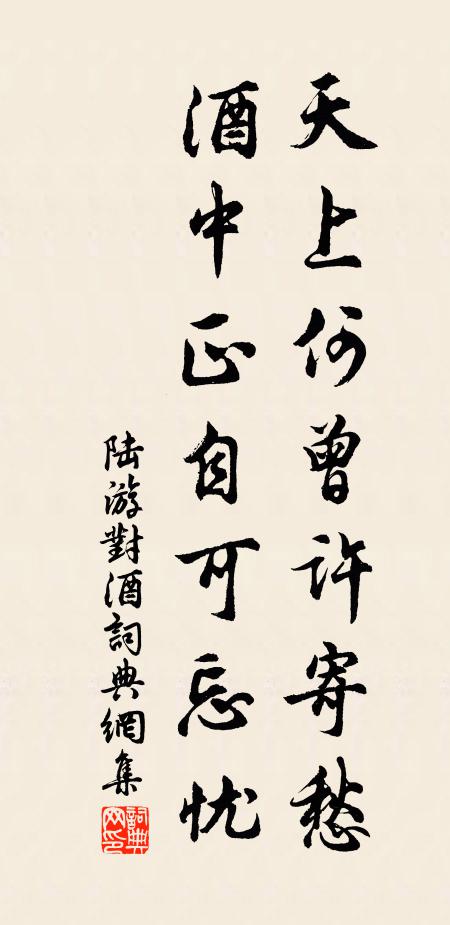 天上何曾許寄愁
酒中正自可忘忧
陆游對酒詞典網集
詞典网印